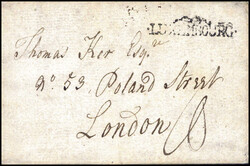 LUXEMBOURG
Thomas Ker Esqre
No 53. Poland Street
London